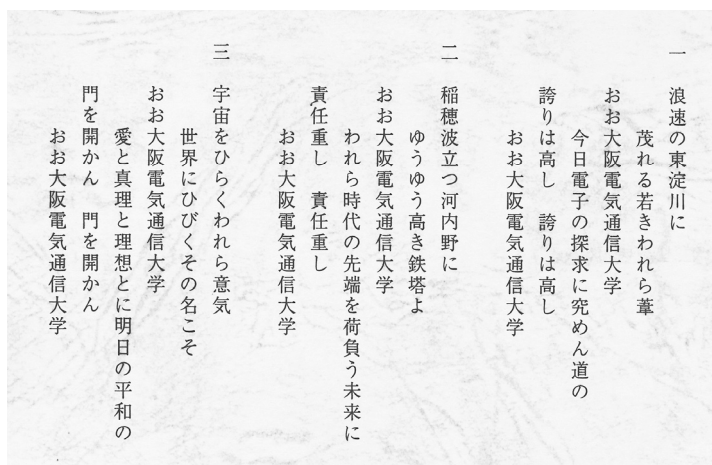 一 浪速の東淀川に
茂れる若きわれら葦
おお大阪電気通信大学
今日電子の探求に究めん道の
誇りは高し 誇りは高し
おお大阪電気通信大学
二 稲穂波立つ河内野に
ゆうゆう高き鉄塔よ
おお大阪電気通信大学
われら時代の先端を荷負う未来に
責任重し 責任重し
おお大阪電気通信大学
三 宇宙をひらくわれら意気
世界にひびくその名こそ
おお大阪電気通信大学
愛と真理と理想とに明日の平和の
門を開かん 門を開かん
おお大阪電気通信大学